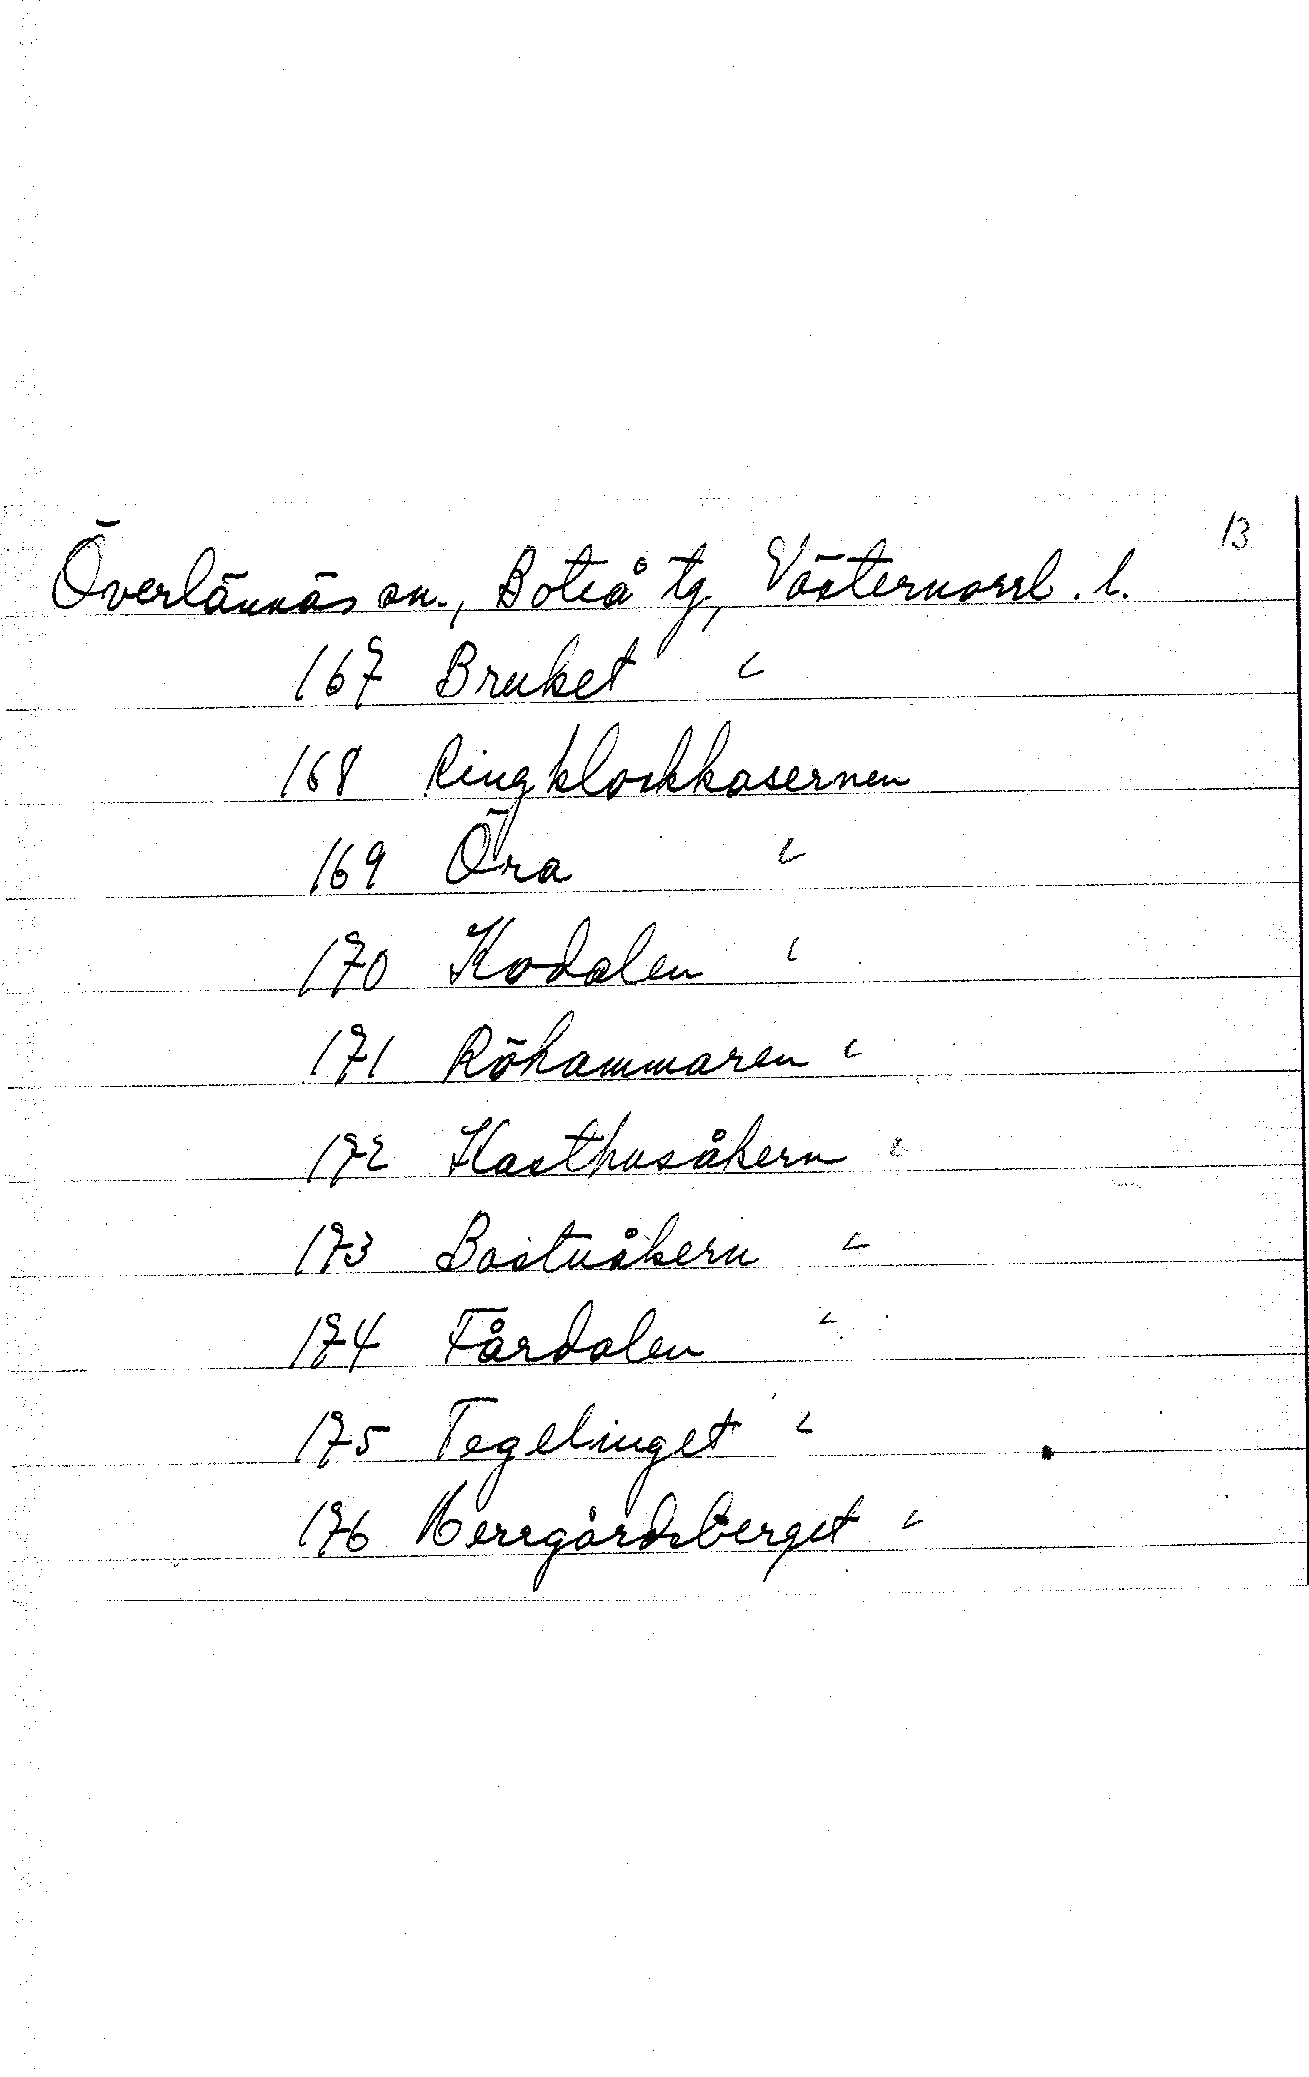 13
Överlännäs sn., Boteå tg, Västernorrl. l.
167 Bruket "
168 Ringklockkasernen
169 Öra "
170 Kodalen "
171 Röhammaren "
172 Kasthusåkern "
173 Bastuåkern "
174 Fårdalen "
175 Tegelinget "
176 Herrgårdsberget "